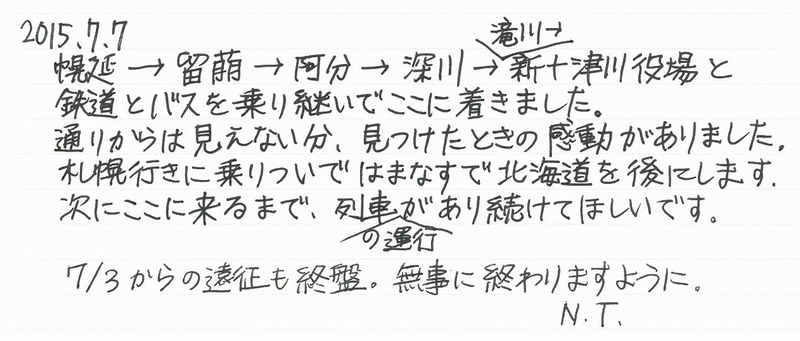 2015.7.7
滝川→
幌延→留萠→阿分→深川→新十津川役場と
鉄道とバスを乗り継いでここに着きました。
通りからは見えない分、見つけたときの感動がありました。
札幌行きに乗りついではまなすで北海道を後にします.
次にここに来るまで、列車があり続けてほしいです。
の運行
7/3からの遠征も終盤。無事に終わりますように。
N.T.